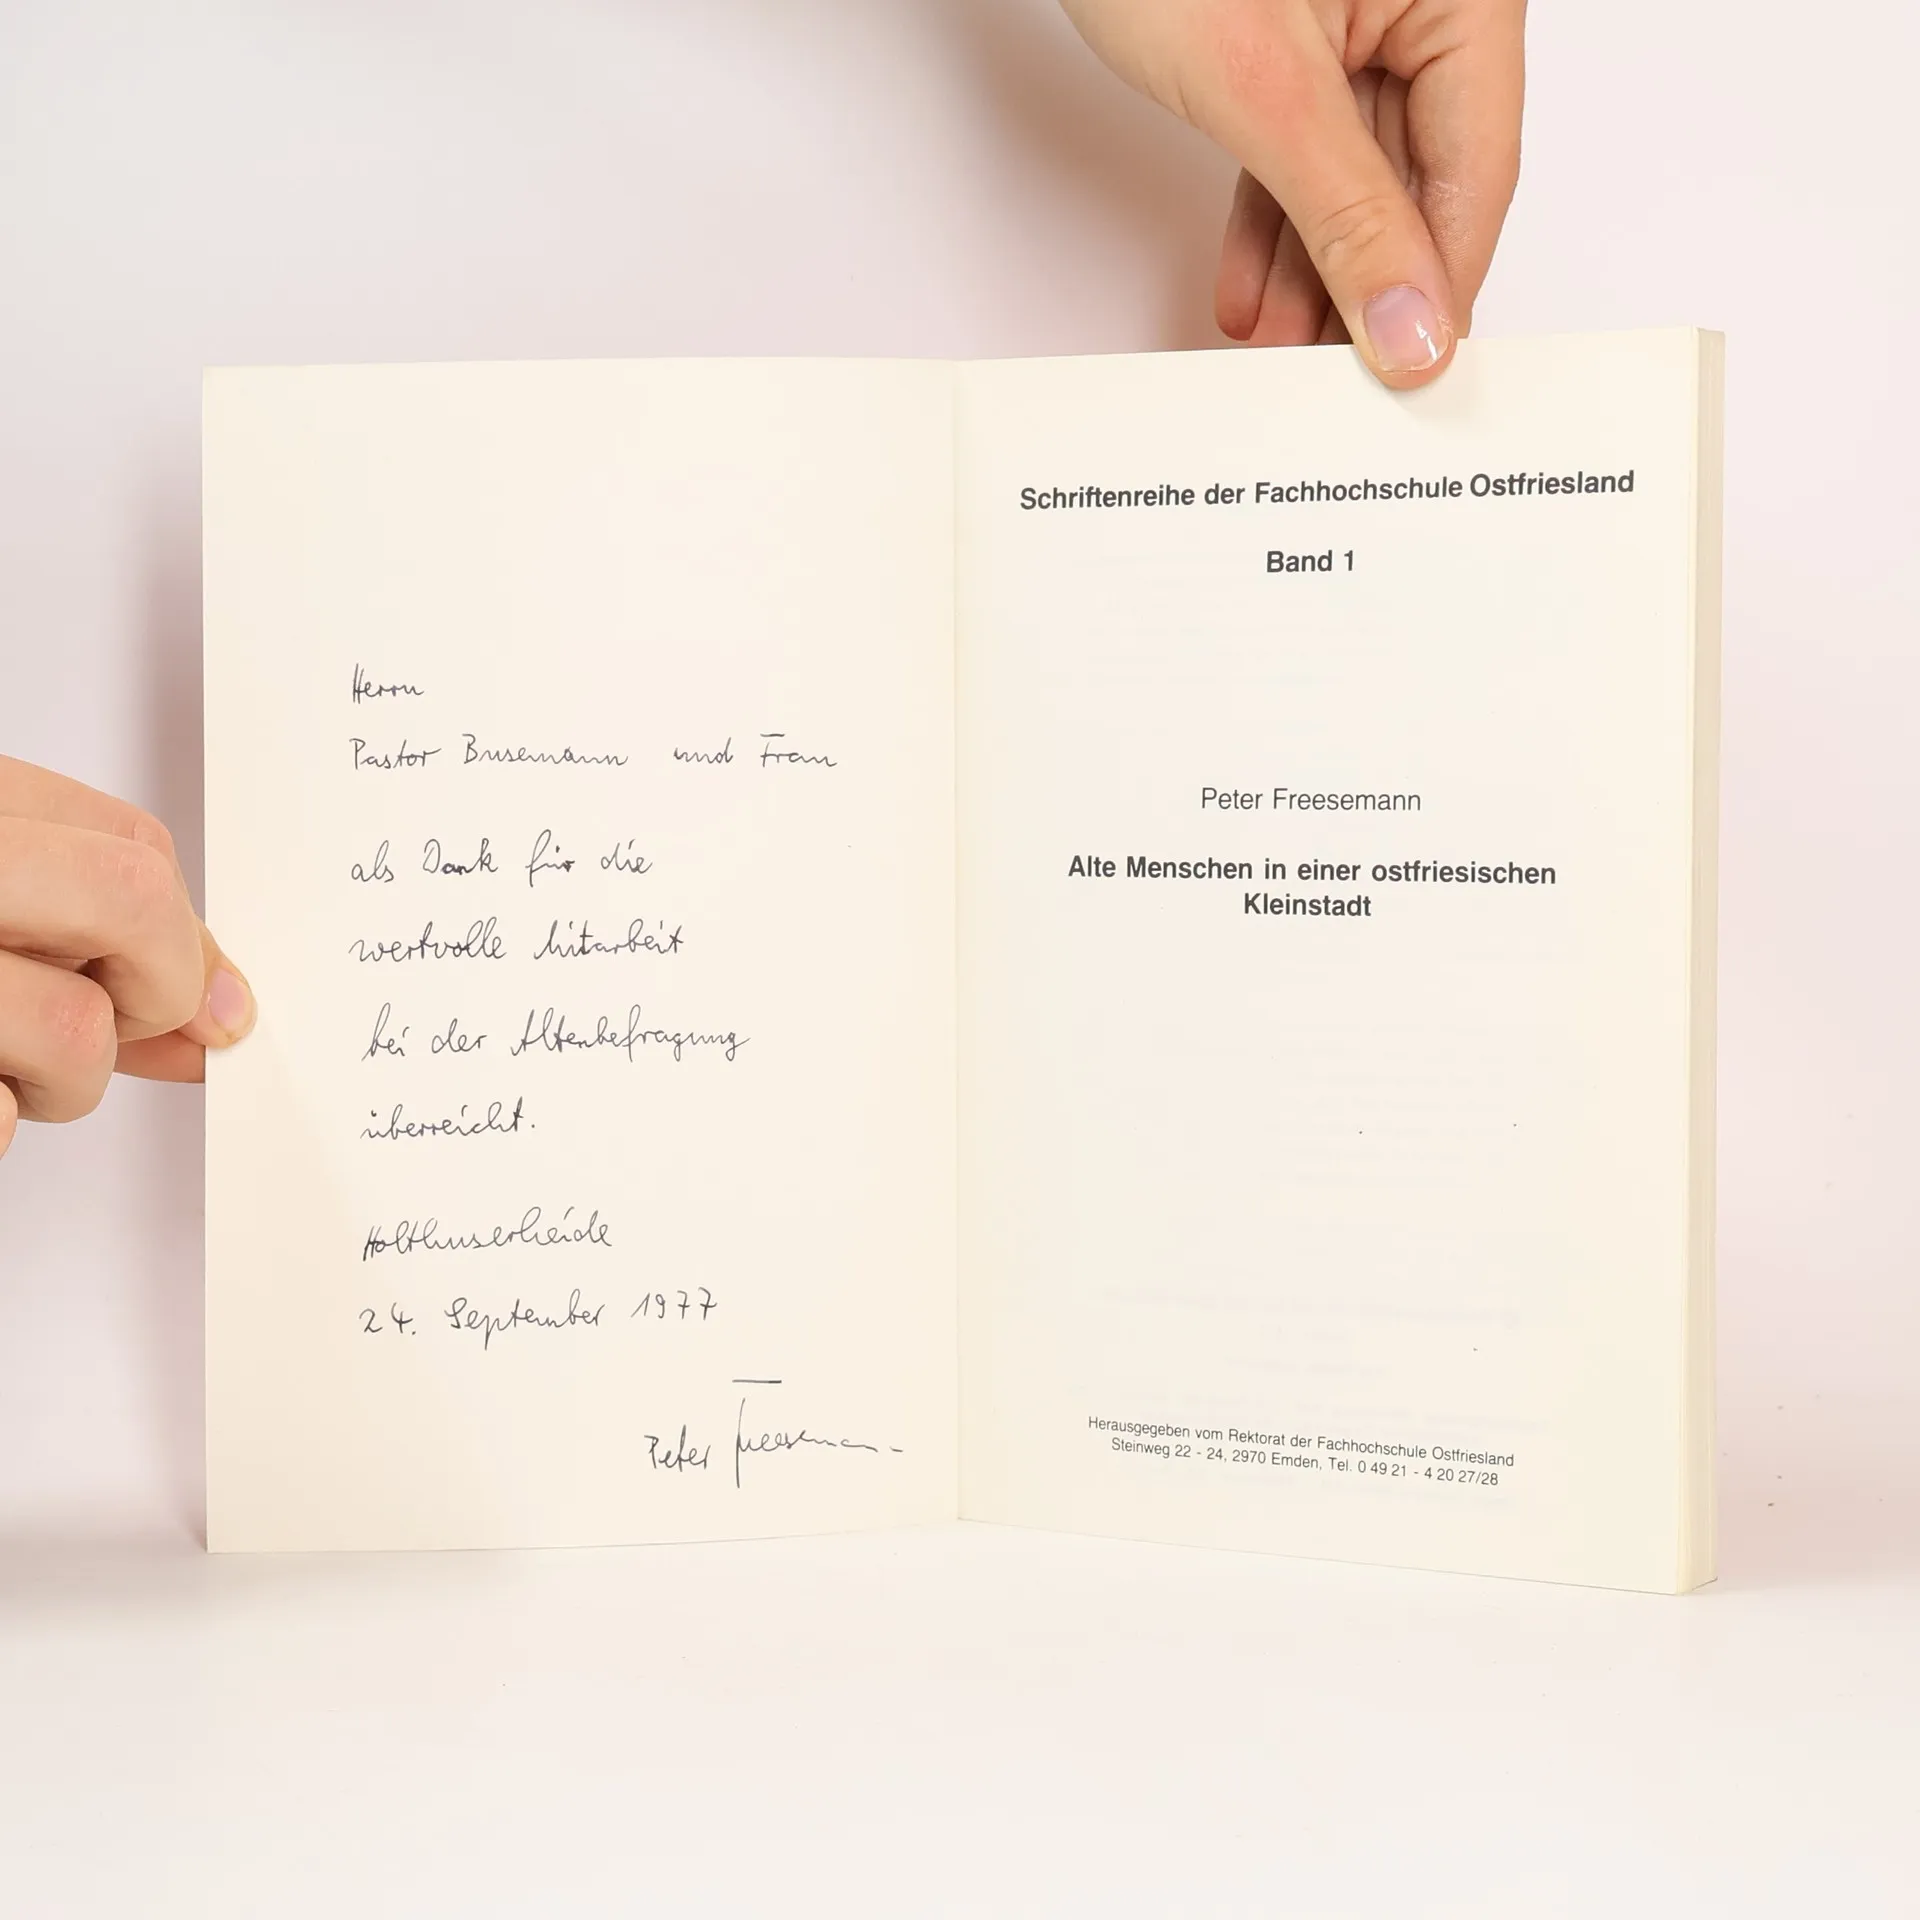 Herrn
Pastor Busemann und Frau
als Dank für die
wertvolle Mitarbeit
bei der Altenbefragung
überreicht.
Holthuserheide
24. September 1977
Peter Freesemann
Schriftenreihe der Fachhochschule Ostfriesland
Band 1
Peter Freesemann
Alte Menschen in einer ostfriesischen
Kleinstadt
Herausgegeben vom Rektorat der Fachhochschule Ostfriesland
Steinweg 22 - 24, 2970 Emden, Tel. 0 49 21 - 4 20 27/28